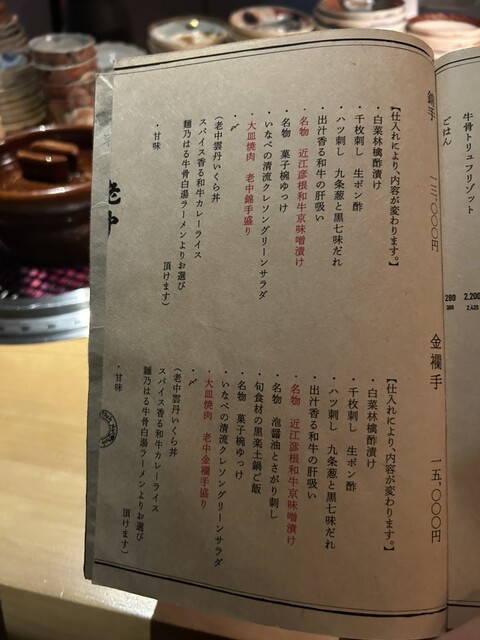 牛骨トリュフリゾット
ごはん
2,200
2,420
280
錦手 一三、〇〇〇円
【仕入れにより、内容が変わります。】
・白菜林檎酢漬け
・千枚刺し 生ポン酢
・ハツ刺し 九条葱と黒七味だれ
・出汁香る和牛の肝吸い
・名物 近江彦根和牛京味噌漬け
・名物 菓子椀ゆっけ
・いなべの清流クレソングリーンサラダ
・大皿焼肉 老中錦手盛り
・〆
(老中雲丹いくら丼
スパイス香る和牛カレーライス
麺乃はる牛骨白湯ラーメンよりお選び
頂けます)
・甘味
金襴手 一五、〇〇〇円
【仕入れにより、内容が変わります。】
・白菜林檎酢漬け
・千枚刺し 生ポン酢
・ハツ刺し 九条葱と黒七味だれ
・出汁香る和牛の肝吸い
・名物 近江彦根和牛京味噌漬け
・名物 泡醤油とさがり刺し
・旬食材の黒楽土鍋ご飯
・名物 菓子椀ゆっけ
・いなべの清流クレソングリーンサラダ
・大皿焼肉 老中金襴手盛り
・〆
(老中雲丹いくら丼
スパイス香る和牛カレーライス
麺乃はる牛骨白湯ラーメンよりお選び
頂けます)
・甘味
老中